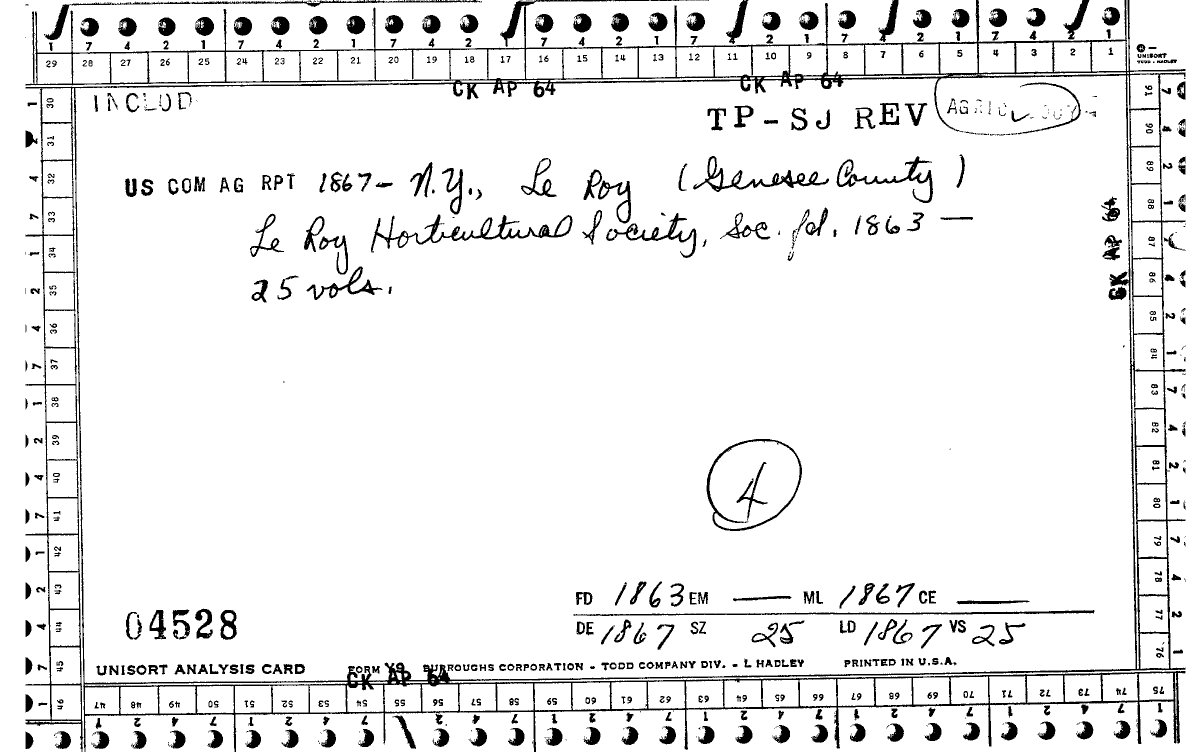 1 7 4 2 1 7 4 2 1 7 4 2 1 7 4 2 1 7 4 2 1 7 4 2 1 7 4 2 1
29 28 27 26 25 24 23 22 21 20 19 18 17 16 15 14 13 12 11 10 9 8 7 6 5 4 3 2 1
UNISORT
TODD - HADLEY
CK AP 64 CK AP 64
INCLUD
TP-SJ REV
US COM AG RPT 1867- N.Y., Le Roy (Genesee County)
Le Roy Horticultural Society, Soc. fd. 1863 —
25 vols.
CK AP 64
4
FD 1863 EM — ML 1867 CE —
DE 1867 SZ 25 LD 1867 VS 25
04528
UNISORT ANALYSIS CARD FORM Y9 BURROUGHS CORPORATION - TODD COMPANY DIV. - L HADLEY PRINTED IN U.S.A.
CK AP 64
30 31 32 33 34 35 36 37 38 39 40 41 42 43 44 45 46
47 48 49 50 51 52 53 54 55 56 57 58 59 60 61 62 63 64 65 66 67 68 69 70 71 72 73 74 75
76 77 78 79 80 81 82 83 84 85 86 87 88 89 90 91